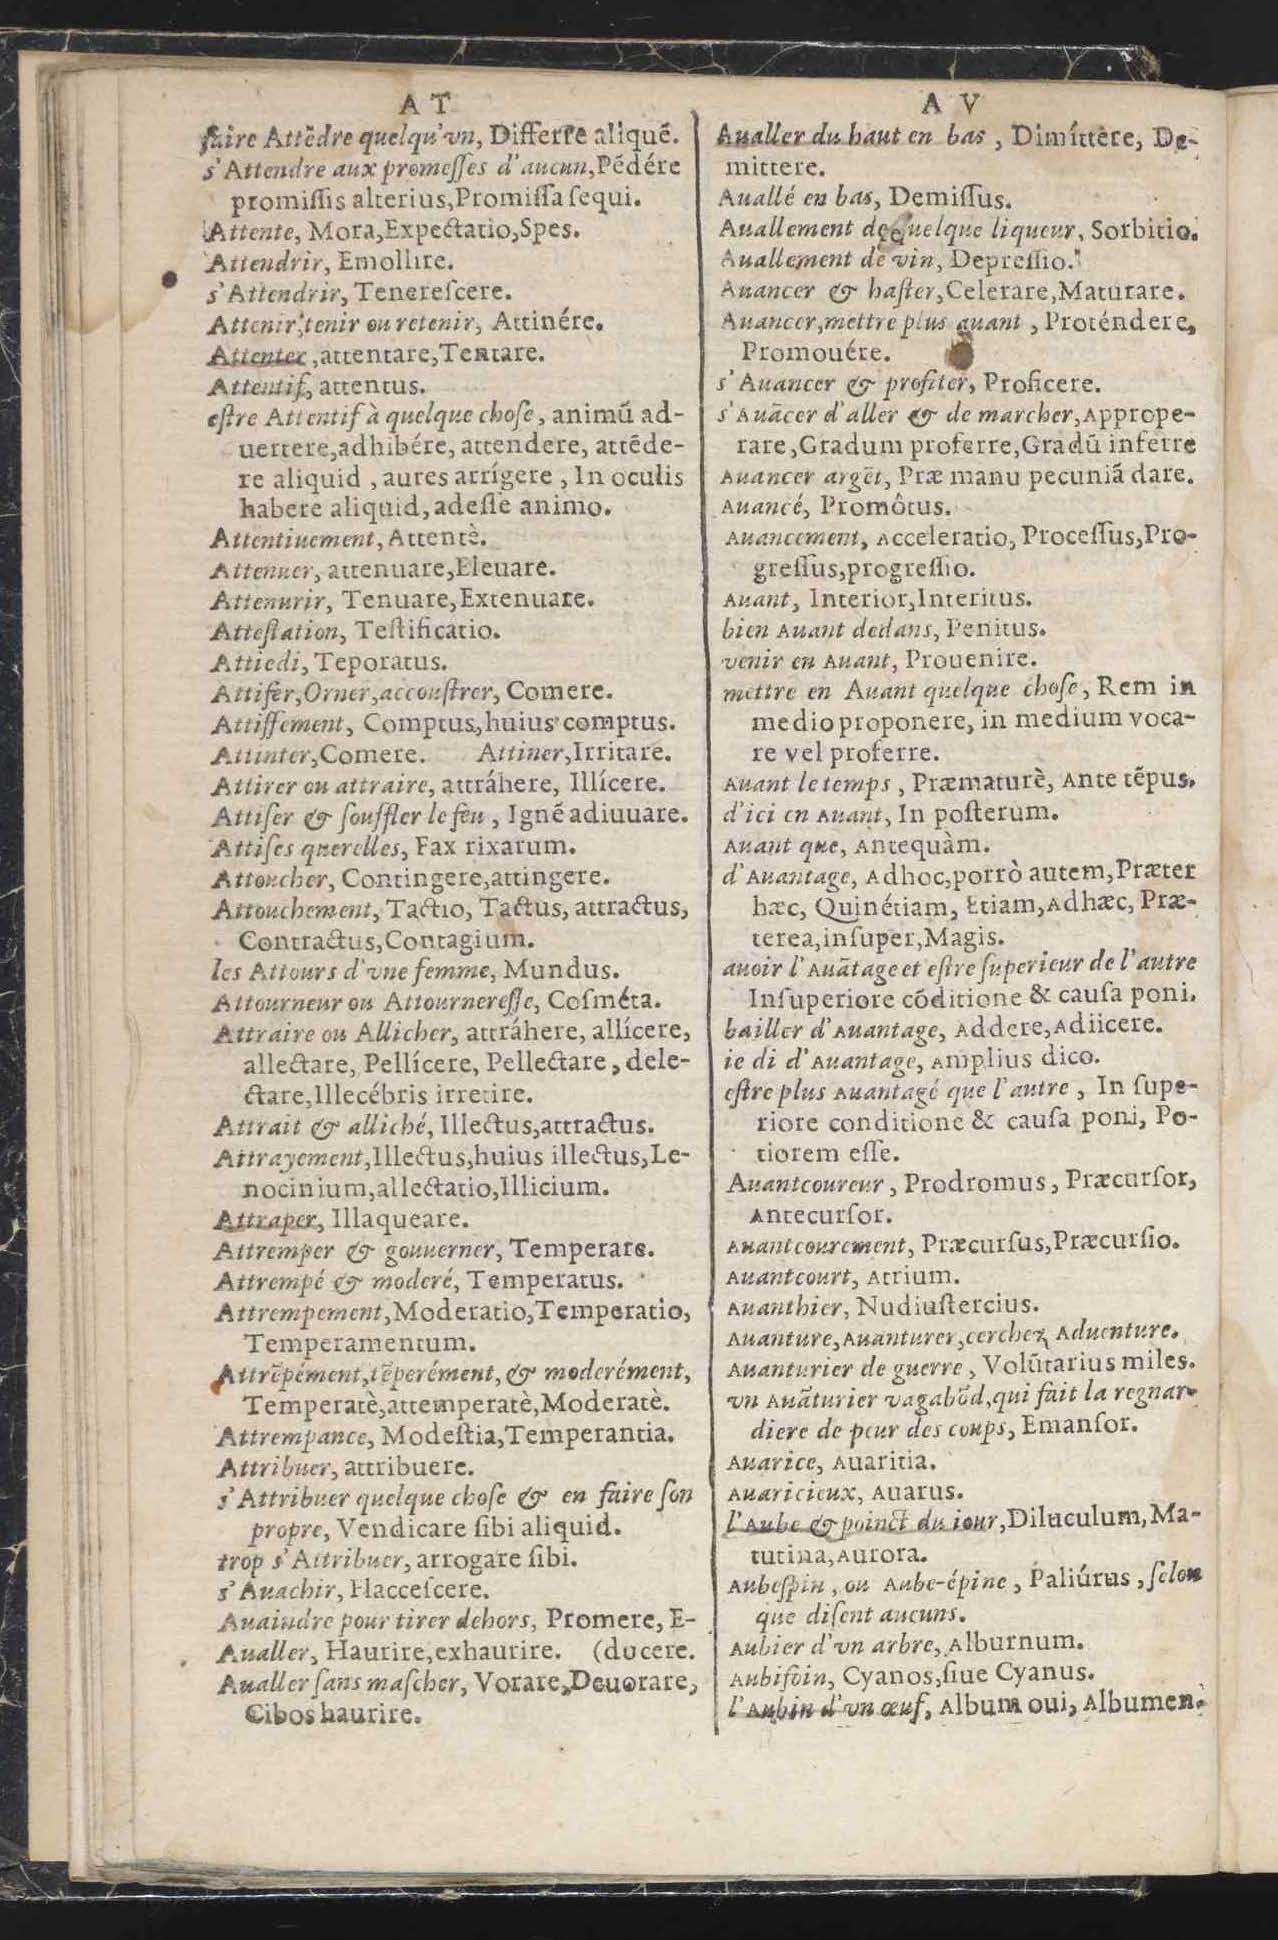 A T
faire Attẽdre quelqu'vn, Differre aliquẽ.
s'Attendre aux promeſſes d'aucun, Pẽdére
promiſſis alterius, Promiſſa ſequi.
Attente, Mora, Expectatio, Spes.
Attendrir, Emollire.
s'Attendrir, Tenereſcere.
Attenir, tenir ou retenir, Attinére.
Attenter, attentare, Tentare.
Attentif, attentus.
eſtre Attentif à quelque choſe, animũ ad-
uertere, adhibére, attendere, attẽde-
re aliquid, aures arrígere, In oculis
habere aliquid, adeſſe animo.
Attentiuement, Attentè.
Attenuer, attenuare, Eleuare.
Attenurir, Tenuare, Extenuare.
Atteſtation, Teſtificatio.
Attiedi, Teporatus.
Attifer, Orner, accouſtrer, Comere.
Attiffement, Comptus, huius comptus.
Attinter, Comere. Attiner, Irritare.
Attirer ou attraire, attráhere, Illícere.
Attiſer & ſouffler le feu, Ignẽ adiuuare.
Attiſes querelles, Fax rixarum.
Attoucher, Contingere, attingere.
Attouchement, Tactio, Tactus, attractus,
Contractus, Contagium.
les Attours d'vne femme, Mundus.
Attourneur ou Attournereſſe, Coſméta.
Attraire ou Allicher, attráhere, allícere,
allectare, Pellícere, Pellectare, dele-
ctare, Illecébris irretire.
Attrait & alliché, Illectus, attractus.
Attrayement, Illectus, huius illectus, Le-
nocinium, allectatio, Illicium.
Attraper, Illaqueare.
Attremper & gouuerner, Temperare.
Attrempé & moderé, Temperatus.
Attrempement, Moderatio, Temperatio,
Temperamentum.
Attrẽpément, tẽperément, & moderément,
Temperatè, attemperatè, Moderatè.
Attrempance, Modeſtia, Temperantia.
Attribuer, attribuere.
s'Attribuer quelque choſe & en faire ſon
propre, Vendicare ſibi aliquid.
trop s'Attribuer, arrogare ſibi.
s'Auachir, Flacceſcere.
Auaindre pour tirer dehors, Promere, E-
Aualler, Haurire, exhaurire. (ducere.
Aualler ſans maſcher, Vorare, Deuorare,
Cibos haurire.
A V
Aualler du haut en bas, Dimíttere, De-
mittere.
Auallé en bas, Demiſſus.
Auallement de quelque liqueur, Sorbitio.
Auallement de vin, Depreſſio.
Auancer & haſter, Celerare, Maturare.
Auancer, mettre plus auant, Proténdere,
Promouére.
s'Auancer & profiter, Proficere.
s'Auãcer d'aller & de marcher, Apprope-
rare, Gradum proferre, Gradũ inferre
Auancer argẽt, Præ manu pecuniã dare.
Auancé, Promôtus.
Auancement, Acceleratio, Proceſſus, Pro-
greſſus, progreſſio.
Auant, Interior, Interitus.
bien Auant dedans, Penitus.
venir en Auant, Prouenire.
mettre en Auant quelque choſe, Rem in
medio proponere, in medium voca-
re vel proferre.
Auant le temps, Præmaturè, Ante tẽpus.
d'ici en Auant, In poſterum.
Auant que, Antequàm.
d'Auantage, Adhoc, porrò autem, Præter
hæc, Quinétiam, Etiam, Adhæc, Præ-
terea, inſuper, Magis.
auoir l'Auãtage et eſtre ſuperieur de l'autre
Inſuperiore cõditione & cauſa poni.
bailler d'Auantage, Addere, Adiicere.
ie di d'Auantage, Amplius dico.
eſtre plus Auantagé que l'autre, In ſupe-
riore conditione & cauſa poni, Po-
tiorem eſſe.
Auantcoureur, Prodromus, Præcurſor,
Antecurſor.
Auantcourement, Præcurſus, Præcurſio.
Auantcourt, Atrium.
Auanthier, Nudiuſtercius.
Auanture, Auanturer, cerchez Aduenture.
Auanturier de guerre, Volũtarius miles.
vn Auãturier vagabõd, qui fait la regnar-
diere de peur des coups, Emanſor.
Auarice, Auaritia.
Auaricieux, Auarus.
l'Aube & poinct du iour, Diluculum, Ma-
tutina, Aurora.
Aubeſpin, ou Aube-épine, Paliúrus, ſelon
que diſent aucuns.
Aubier d'vn arbre, Alburnum.
Aubifoin, Cyanos, ſiue Cyanus.
l'Aubin d'vn œuf, Album oui, Albumen.